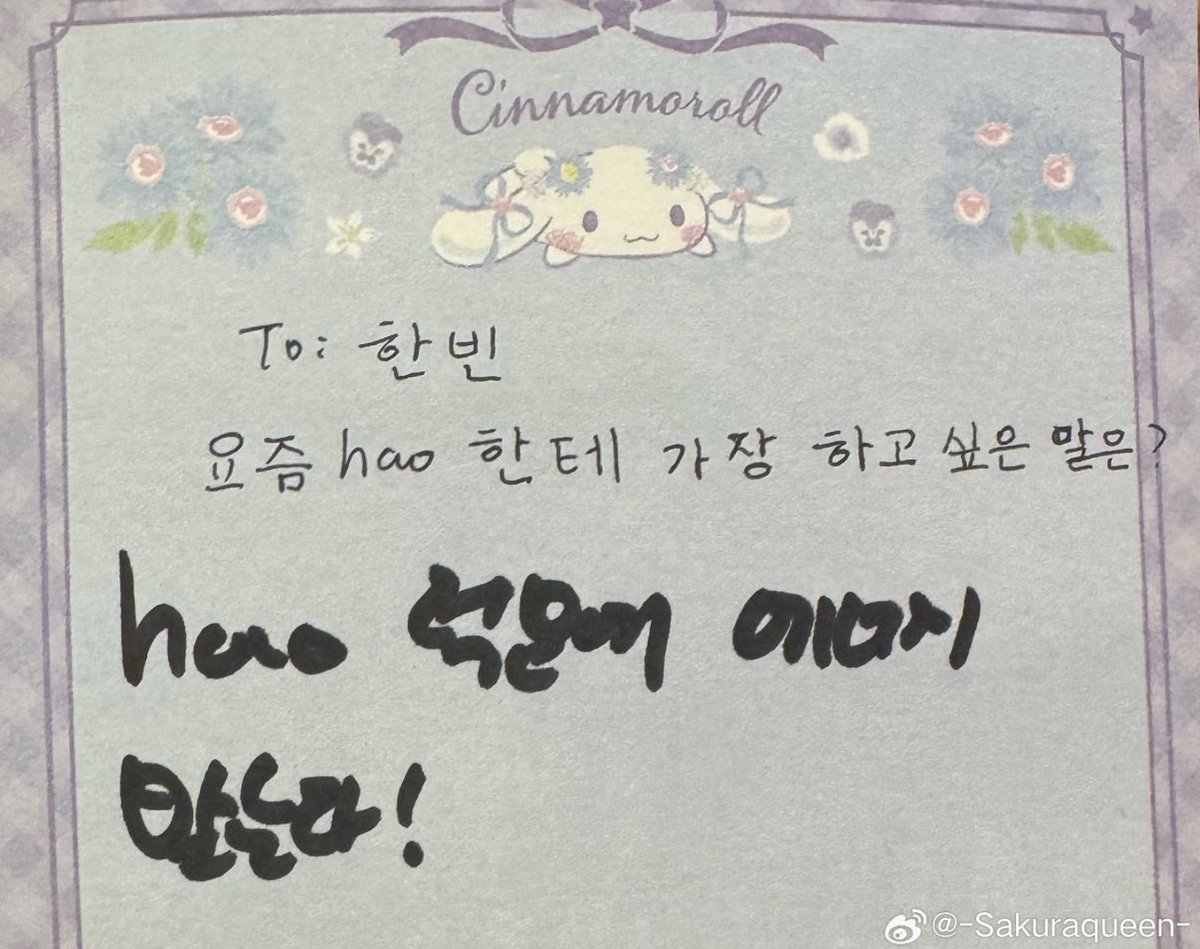 Cinnamoroll
To: 한빈
요즘 hao 한테 가장 하고 싶은 말은?
hao 때문에
!
@-Sakuraqueen-